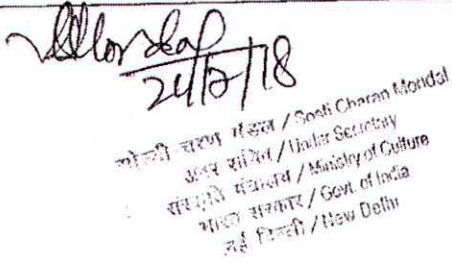 24/2/18
चरण मंडल / Sosti Charan Mondal
अवर सचिव / Under Secretary
संस्कृति मंत्रालय / Ministry of Culture
भारत सरकार / Govt. of India
नई दिल्ली / New Delhi